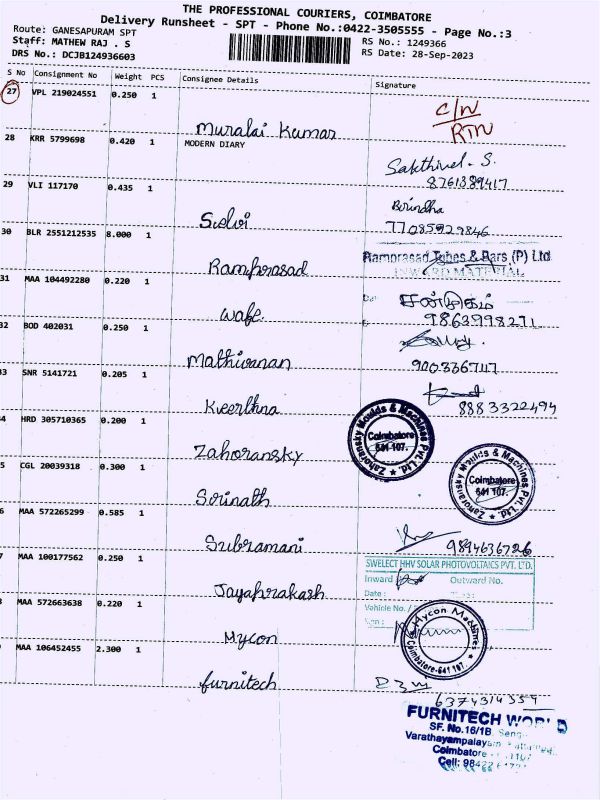 THE PROFESSIONAL COURIERS, COIMBATORE
Delivery Runsheet - SPT - Phone No.:0422-3505555 - Page No.:3
Route: GANESAPURAM SPT
Staff: MATHEW RAJ . S
DRS No.: DCJB124936603
RS No.: 1249366
RS Date: 28-Sep-2023
S No Consignment No Weight PCS Consignee Details Signature
27 VPL 219024551 0.250 1
Muralai Kumar
C/N
RTN
28 KRR 5799698 0.420 1 MODERN DIARY
Sakthivel. S.
8761389417
29 VLI 117170 0.435 1
Selvi
Brindha
7708592 9846
30 BLR 2551212535 8.000 1
Ramprasad
Ramprasad Tubes & Bars (P) Ltd
INWARD MATERIAL
31 MAA 104492280 0.220 1
Wafe
சண்முகம்
9863998271
32 BOD 402031 0.250 1
Mathivanan
900336747
3 SNR 5141721 0.205 1
Keerthna
8883322494
4 HRD 305710365 0.200 1
Zahoransky
Zahoransky Moulds & Machines Pvt. Ltd.
Coimbatore
641 107.
5 CGL 20039318 0.300 1
Srinath
Zahoransky Moulds & Machines Pvt. Ltd.
Coimbatore
641 107.
6 MAA 572265299 0.585 1
Subramani
9894636726
7 MAA 100177562 0.250 1
Jayaprakash
SWELECT HHV SOLAR PHOTOVOLTAICS PVT. LTD.
Inward Outward No.
Date :
Vehicle No. /
MAA 572663638 0.220 1
Mycon
Mycon Machines
Coimbatore-641 107.
MAA 106452455 2.300 1
furnitech
6374314354
FURNITECH WORLD
SF. No.16/1B
Varathayampalayam
Coimbatore
Cell: 9842